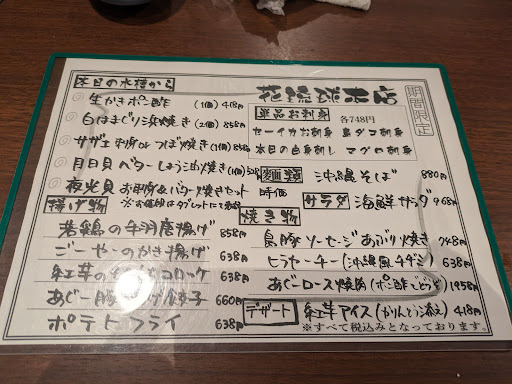 本日の水槽から
生かきポン酢 (1個) 418円
白はまぐり浜焼き (2個) 858円
サザエ 刺身 or つぼ焼き (1個) 858円
月日貝 バターしょうゆ焼き (1個)
夜光貝 お刺身&バター焼きセット 時価
花琉球本店
期間限定
単品お刺身 各748円
セーイカお刺身 島ダコ刺身
本日の白身刺し マグロ刺身
麺類 沖縄そば 880円
サラダ 海鮮サラダ 968円
揚げ物
若鶏の手羽唐揚げ 858円
ごーやーのかき揚げ 638円
紅芋の コロッケ 638円
あぐー豚 餃子 660円
ポテトフライ 638円
焼き物
島豚ソーセージあぶり焼き 748円
ヒラヤーチー(沖縄風チヂミ) 638円
あぐーロース焼肉 (ポン酢 1958円
デザート 紅芋アイス (かりんとう添え) 418円
※すべて税込みとなっております。